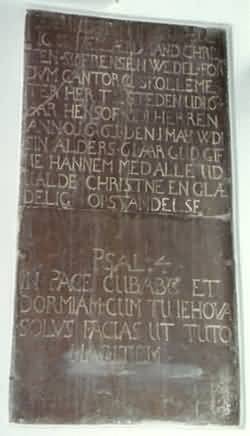 AND CHRI
EN SØFRENSEN WEDEL FOR
DVM CANTOR
TER HER T STEDEN UDI G
HENSOF I HERREN
ANNO DEN I MAY
SIN ALDERS AAR GUD GIF
IE HANNEM MED ALLE UD
UALDE CHRISTNE EN GLÆ
DELIG OPSTANDELSE
PSAL: 4
IN PACE CUBABO ET
DORMIAM CUM TU IEHOVA
SOLUS FACIAS UT TUTO
HABITEM